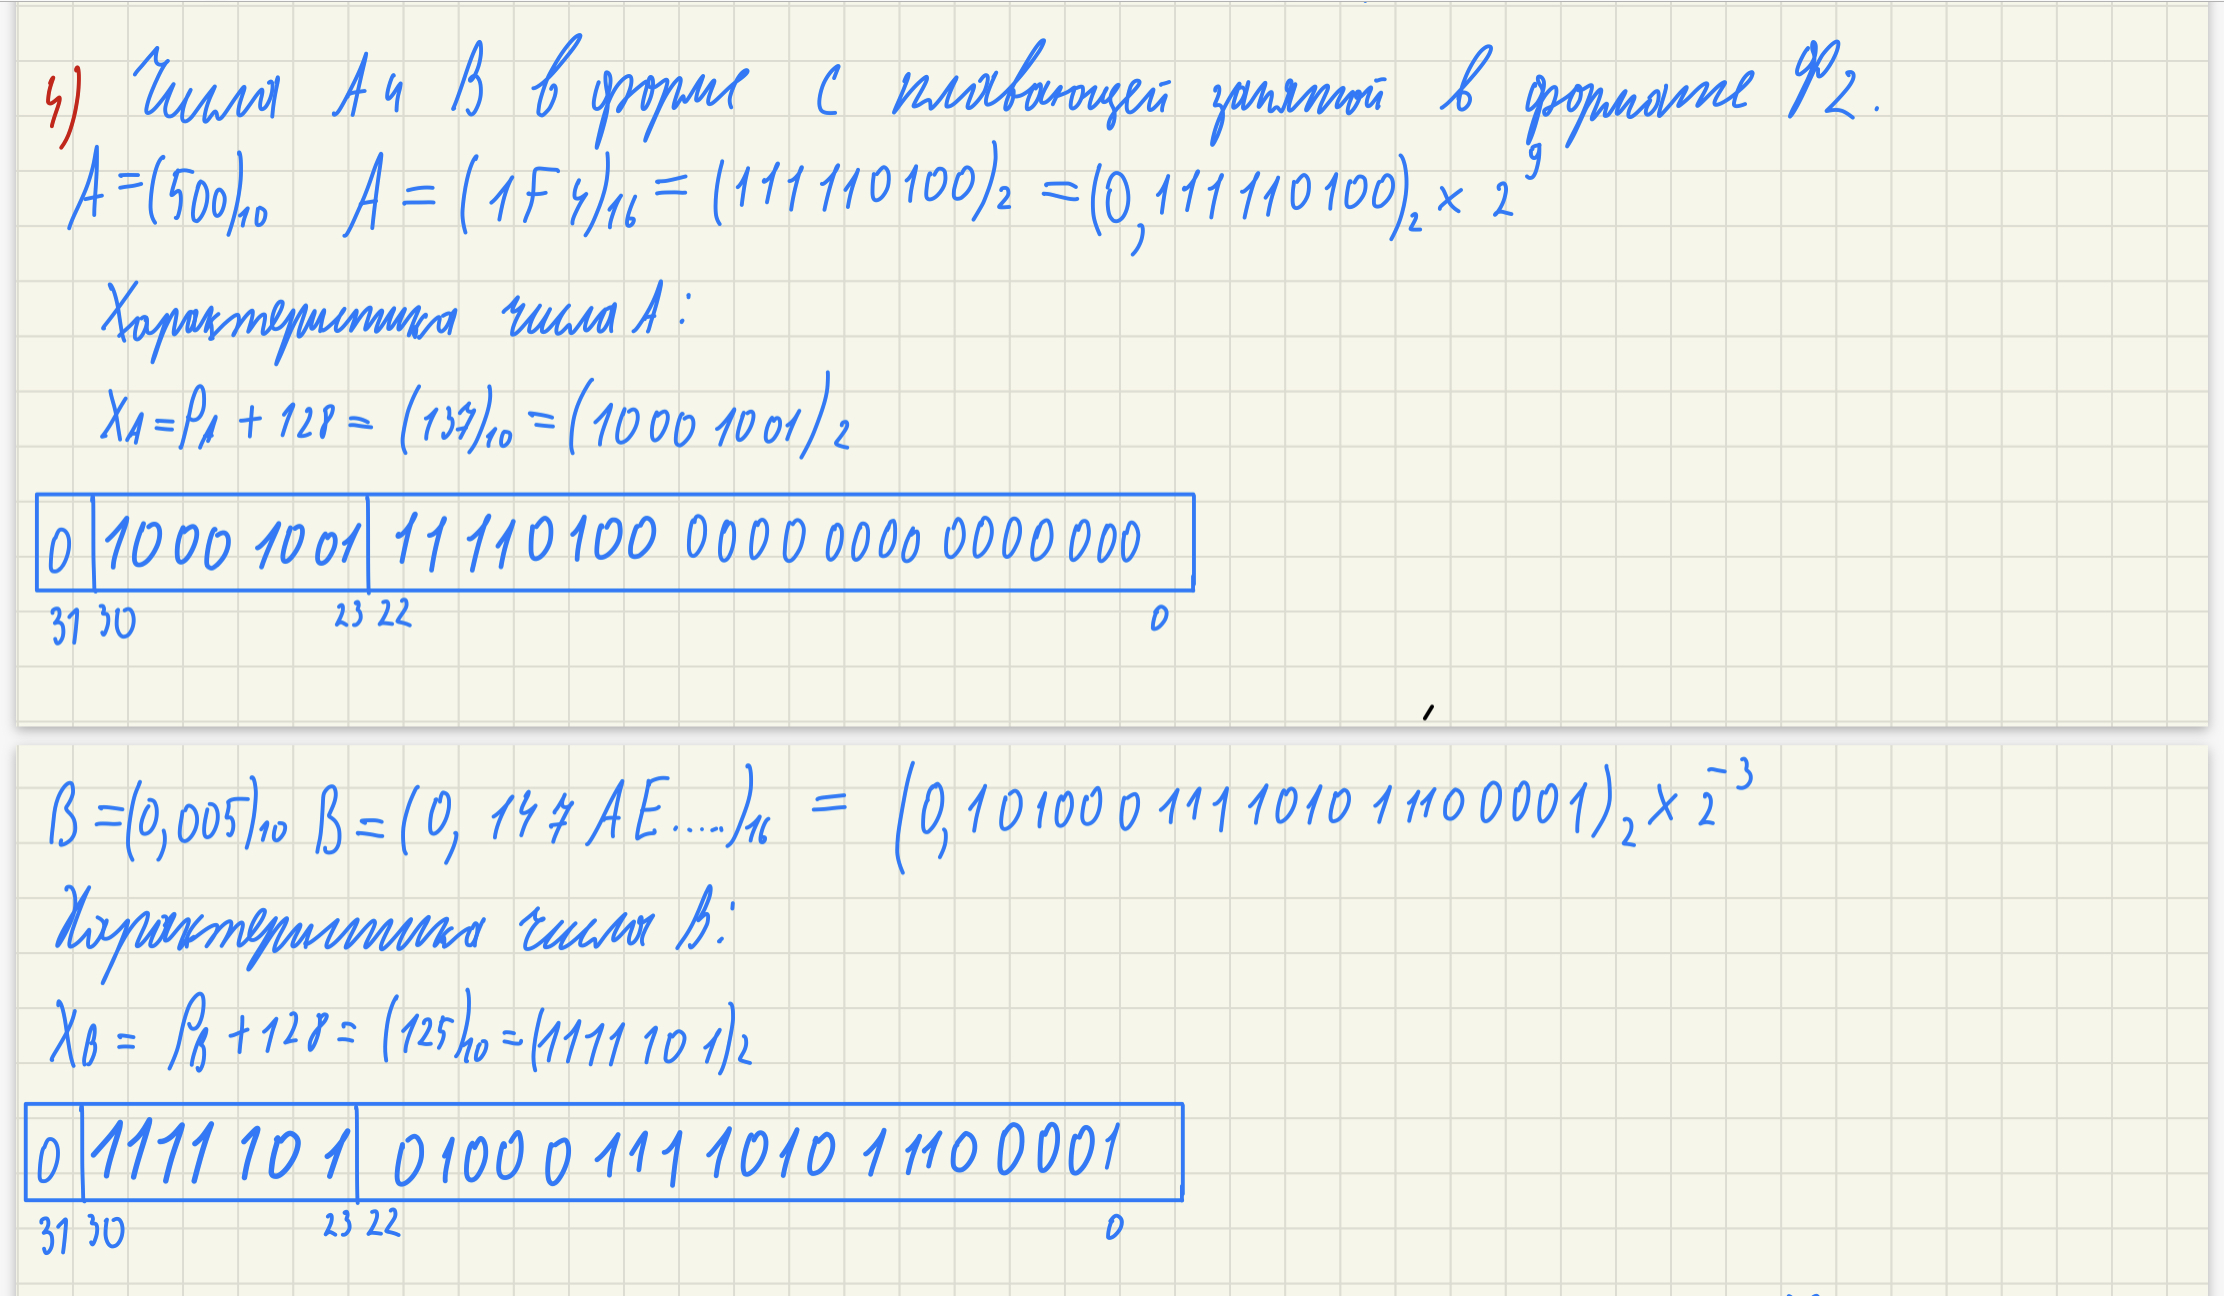 4) Числа А и В в форме с плавающей запятой в формате Ф2.
A = (500)₁₀ A = (1F4)₁₆ = (111110100)₂ = (0,111110100)₂ × 2⁹
Характеристика числа А:
Xᴀ = Pᴀ + 128 = (137)₁₀ = (1000 1001)₂
0 1000 1001 11110100 0000 0000 0000000
31 30 23 22 0
B = (0,005)₁₀ B = (0,147AE.....)₁₆ = (0,101000111101011100001)₂ × 2⁻³
Характеристика числа В:
Xʙ = Pʙ + 128 = (125)₁₀ = (1111 101)₂
0 1111 101 01000 111 1010 1 1100001
31 30 23 22 0